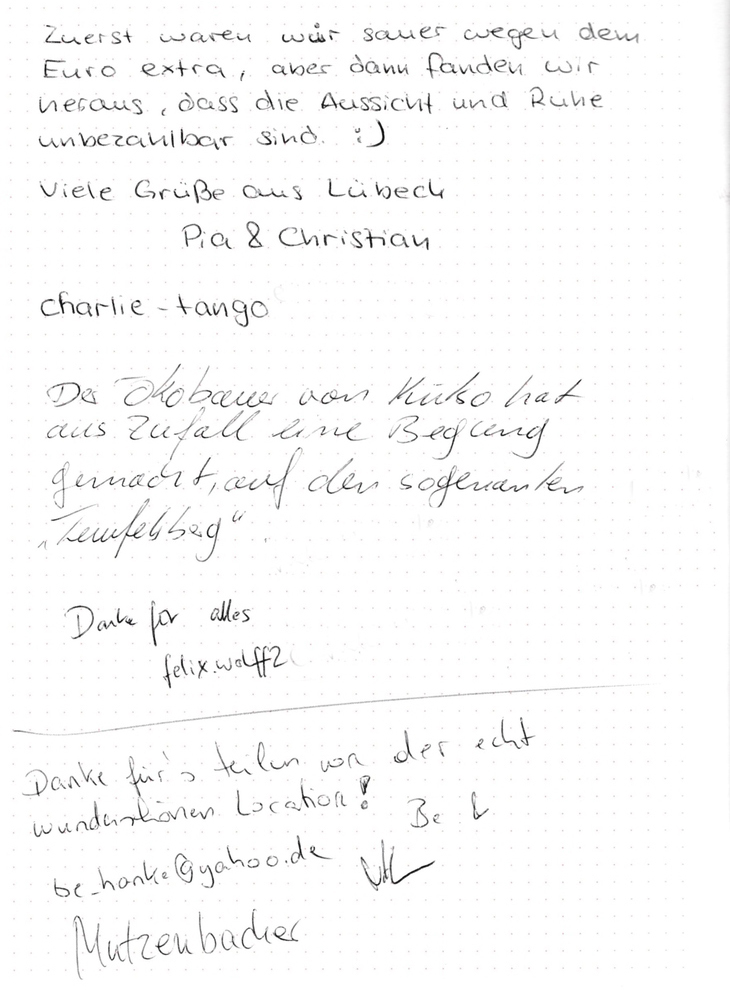 Zuerst waren wir sauer wegen dem
Euro extra, aber dann fanden wir
heraus, dass die Aussicht und Ruhe
unbezahlbar sind. :)
Viele Grüße aus Lübeck
Pia & Christian
charlie-tango
Der Ökobauer von hat
aus Zufall eine Begung
gemacht, auf den sogenanten
„Teufelsberg“.
Danke für alles
felix.wolff2
Danke für's teilen von der echt
wunderschönen Location!
Be &
be_hanke@yahoo.de
Mutzenbacher